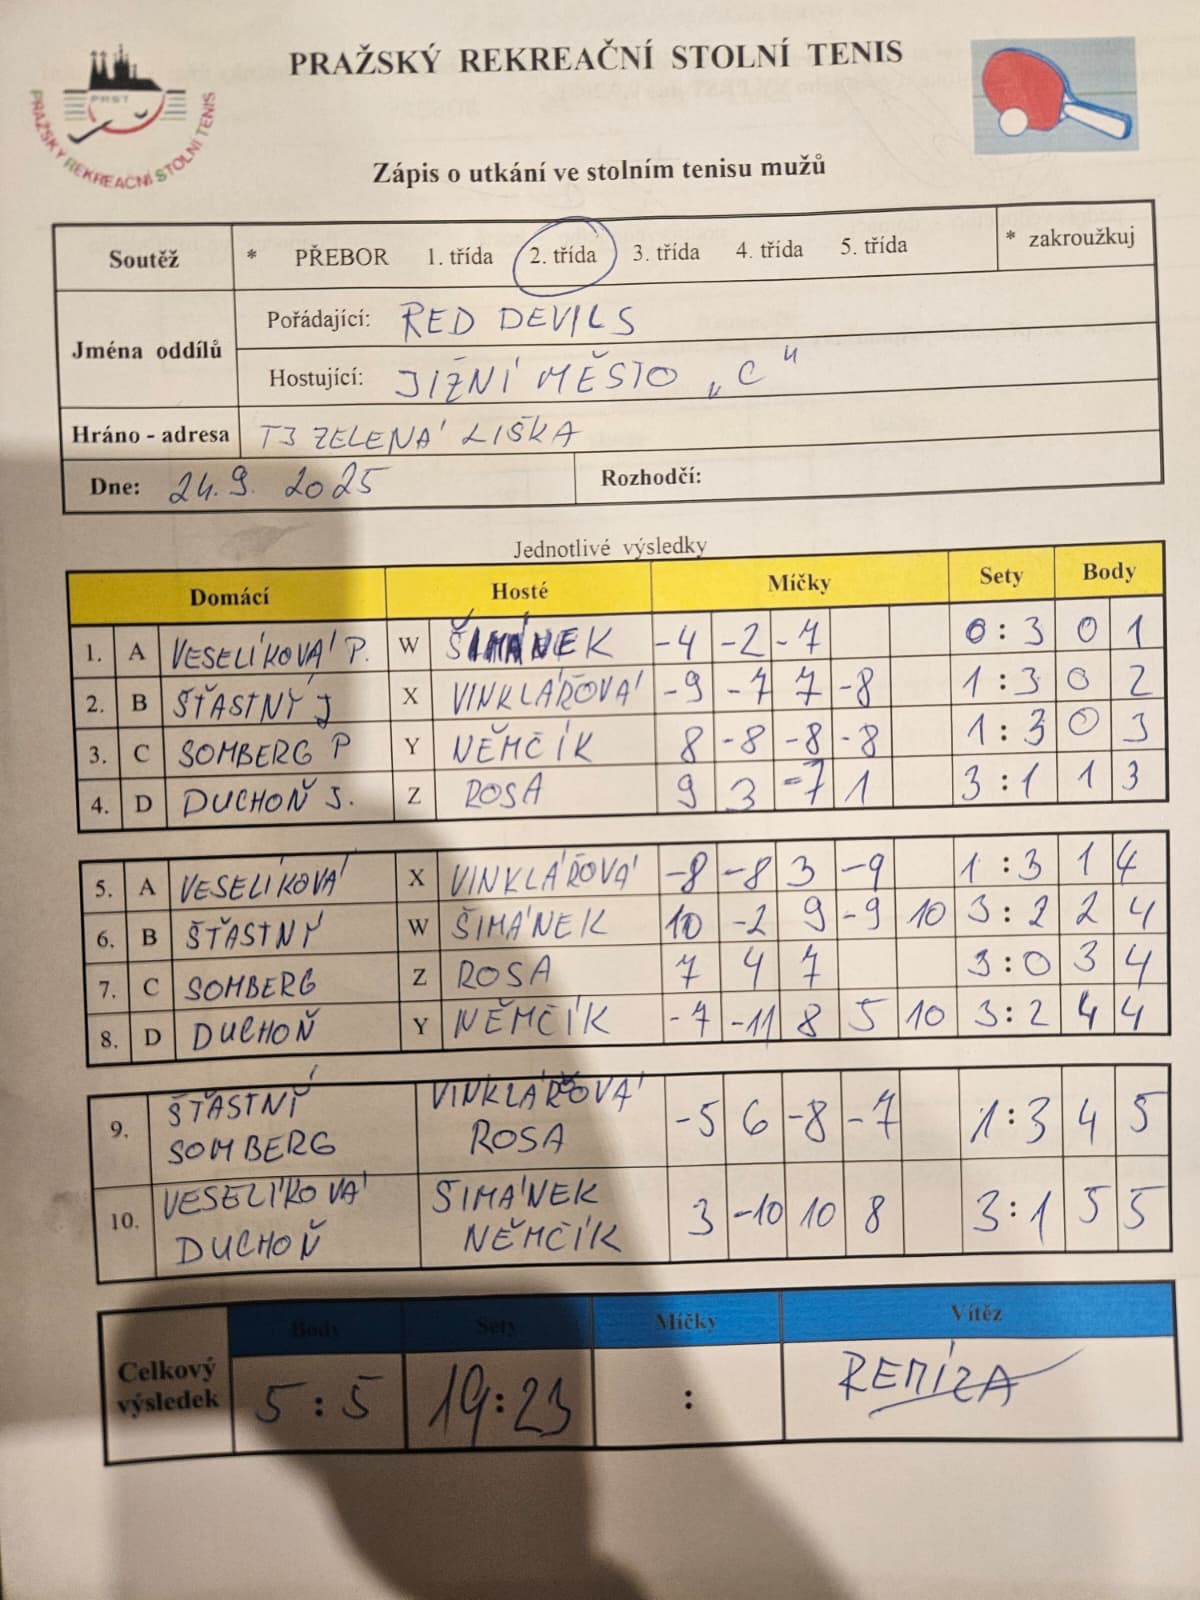 PRAŽSKÝ REKREAČNÍ STOLNÍ TENIS
PRST
PRAŽSKÝ REKREAČNÍ STOLNÍ TENIS
Zápis o utkání ve stolním tenisu mužů
Soutěž * PŘEBOR 1. třída 2. třída 3. třída 4. třída 5. třída * zakroužkuj
Jména oddílů
Pořádající: RED DEVILS
Hostující: JIŽNÍ MĚSTO „C"
Hráno - adresa TJ ZELENÁ LIŠKA
Dne: 24.9. 2025 Rozhodčí:
Jednotlivé výsledky
Domácí Hosté Míčky Sety Body
1. A VESELÍKOVÁ P. W ŠIMÁNEK -4 -2 -7 0:3 0 1
2. B ŠŤASTNÝ J X VINKLÁŘOVÁ -9 -7 7 -8 1:3 0 2
3. C SOMBERG P Y NĚMČÍK 8 -8 -8 -8 1:3 0 3
4. D DUCHOŇ J. Z ROSA 9 3 -7 1 3:1 1 3
5. A VESELÍKOVÁ X VINKLÁŘOVÁ -8 -8 3 -9 1:3 1 4
6. B ŠŤASTNÝ W ŠIMÁNEK 10 -2 9 -9 10 3:2 2 4
7. C SOMBERG Z ROSA 7 4 7 3:0 3 4
8. D DUCHOŇ Y NĚMČÍK -7 -11 8 5 10 3:2 4 4
9. ŠŤASTNÝ VINKLÁŘOVÁ -5 6 -8 -7 1:3 4 5
SOMBERG ROSA
10. VESELÍKOVÁ ŠIMÁNEK 3 -10 10 8 3:1 5 5
DUCHOŇ NĚMČÍK
Body Sety Míčky Vítěz
Celkový výsledek 5:5 19:23 : REMÍZA